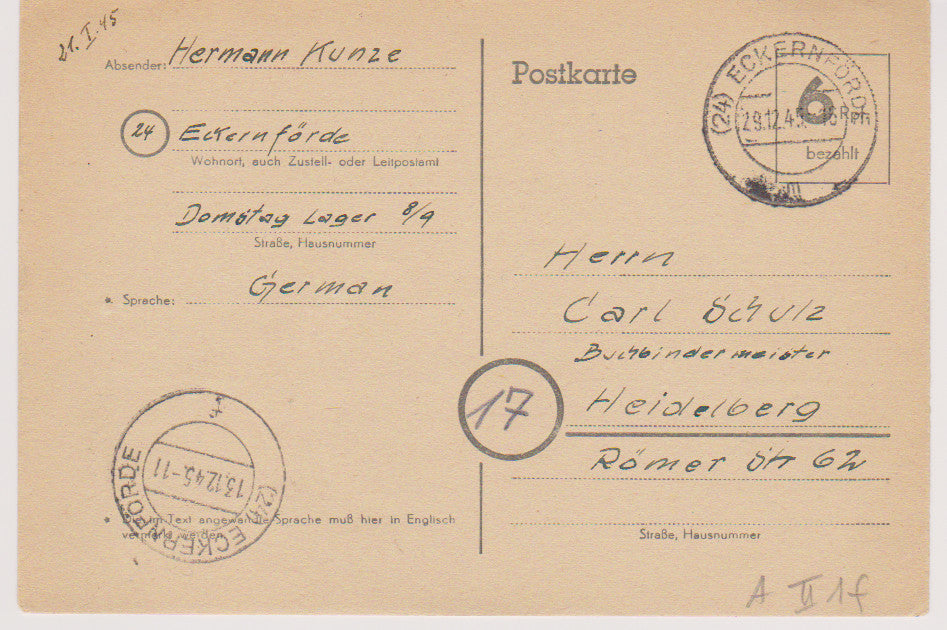 21. I. 45
Absender: Hermann Kunze
24 Eckernförde
Wohnort, auch Zustell- oder Leitpostamt
Lager 8/9
Straße, Hausnummer
* Sprache: German
(24) ECKERNFÖRDE
13.12.45.-11
* Die im Text angewandte Sprache muß hier in Englisch
vermerkt werden
Postkarte
(24) ECKERNFÖRDE
29.12.45
6 Rpf
bezahlt
Herrn
Carl Schulz
Buchbindermeister
17 Heidelberg
Römer Str 62
Straße, Hausnummer
A II 1f